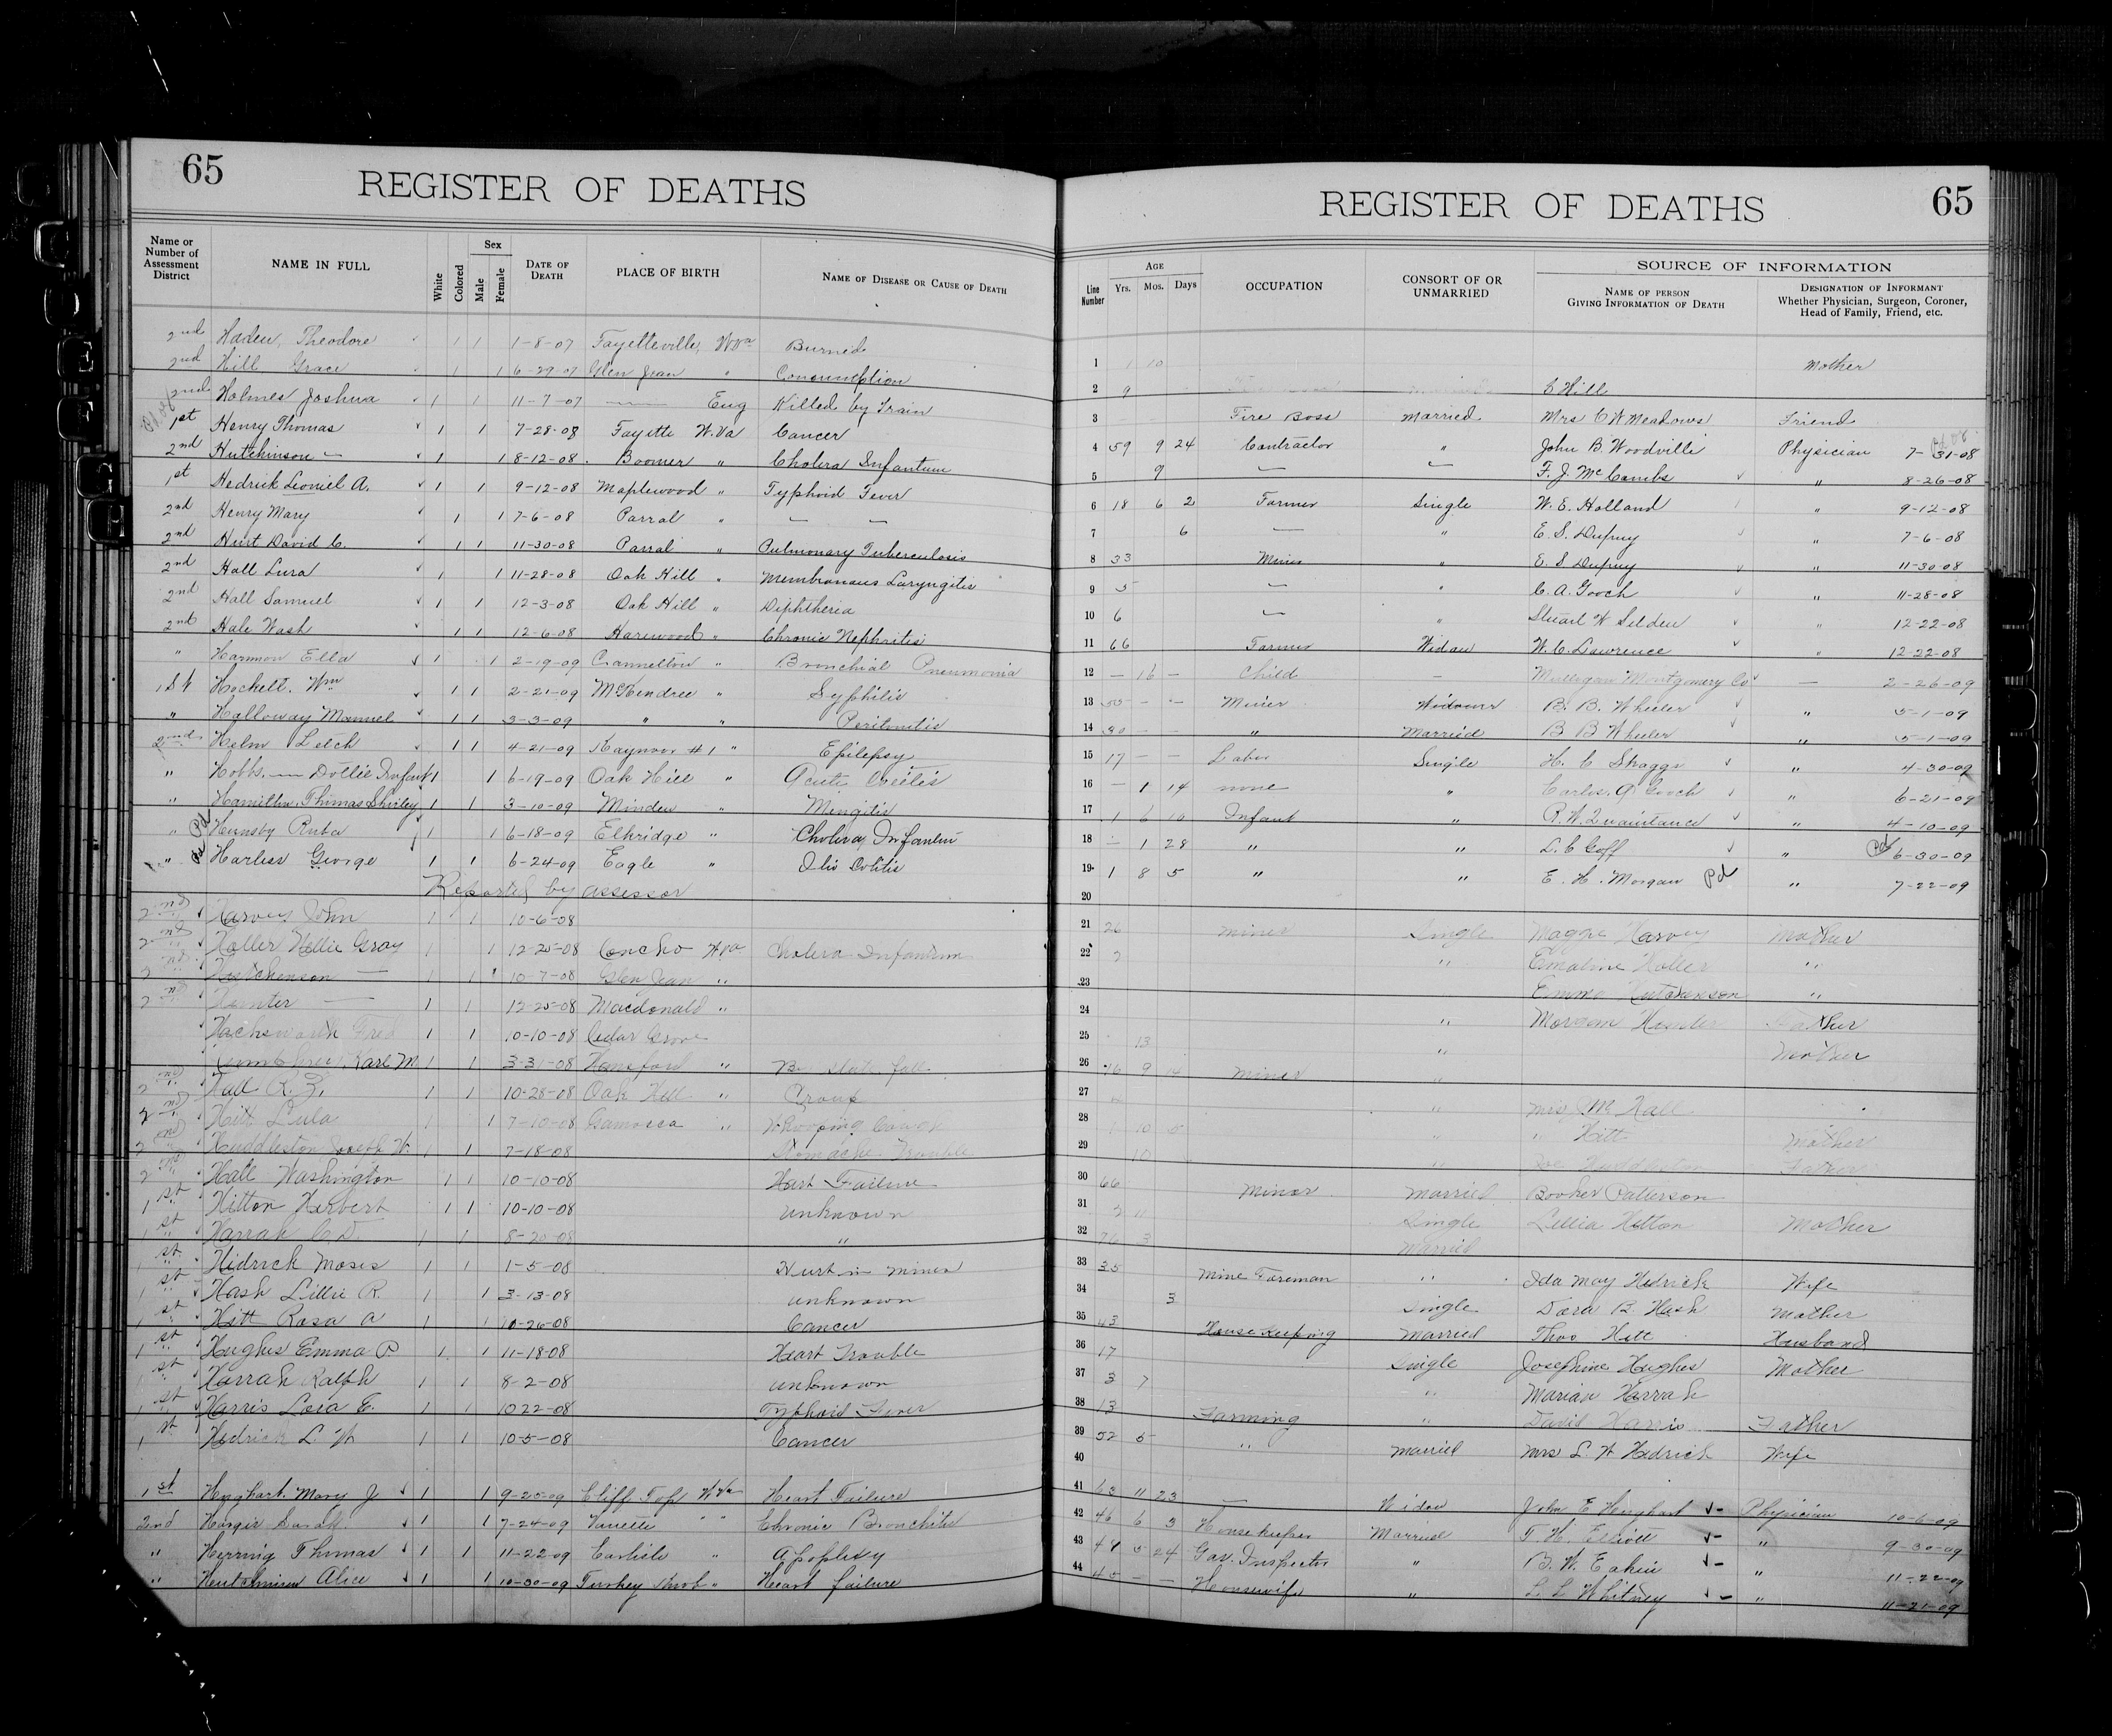 65
REGISTER OF DEATHS
Name or Number of Assessment District
NAME IN FULL
White
Colored
Sex
Male
Female
DATE OF DEATH
PLACE OF BIRTH
NAME OF DISEASE OR CAUSE OF DEATH
2nd Haden, Theodore 1 1 1-8-07 Fayetteville, W Va Burned
2nd Hill Grace 1 1 6-29-07 Glen Jean " Consumption
2nd Holmes Joshua 1 1 11-7-07 Eng Killed by Train
1st Henry Thomas 1 1 7-28-08 Fayette W.Va Cancer
2nd Hutchinson — 1 1 8-12-08 Boomer " Cholera Infantum
1st Hedrick Leoniel A. 1 1 9-12-08 Maplewood " Typhoid Fever
2nd Henry Mary 1 1 7-6-08 Parral " — —
2nd Hurt David C. 1 1 11-30-08 Parral " Pulmonary Tuberculosis
2nd Hall Lura 1 1 11-28-08 Oak Hill " Membranous Laryngitis
2nd Hall Samuel 1 1 12-3-08 Oak Hill " Diphtheria
2nd Hale Wash 1 1 12-6-08 Harewood " Chronic Nephritis
" Harmon Ella 1 1 2-19-09 Cannelton " Bronchial Pneumonia
1st Hockett. Wm 1 1 2-21-09 McKendree " Syphilis
" Halloway Manuel 1 1 3-3-09 " " Peritonitis
2nd Helm Letch 1 1 4-21-09 Kaymoor #1 " Epilepsy
" Hobbs. — Dollie Infant 1 1 6-19-09 Oak Hill " Acute
" Hamilton, Thomas Shirley 1 1 3-10-09 Minden " Mengitis
" Pd Hunsby Ruba 1 1 6-18-09 Elkridge " Cholera Infantum
" Pd Harless George 1 1 6-24-09 Eagle " Ilio Colitis
Reported by assessor
2nd Harvey John 1 1 10-6-08
2nd Haller Nellie Gray 1 1 12-25-08 Concho W Va Cholera Infantum
2nd Hutchenson — 1 1 10-7-08 Glen Jean "
2nd Hunter — 1 1 12-25-08 Macdonald "
Hachsworth Fred 1 1 10-10-08 Cedar Grove
Karl M. 1 1 3-31-08 Hansford " By slate fall
2nd Hall R. Z. 1 1 10-28-08 Oak Hill " Croup
2nd Hitt Lula 1 1 7-10-08 " Whooping Cough
2nd Huddleston Joseph W. 1 1 7-18-08 Stomache Trouble
2nd Hall Washington 1 1 10-10-08 Hart Failure
1st Hitton Herbert 1 1 10-10-08 unknown
1st Harrah C.D. 1 1 8-20-08 "
1st Hidrick Moses 1 1 1-5-08 Hurt in mines
1st Hash Lillie R. 1 1 3-13-08 unknown
1st Hitt Rosa A 1 1 10-26-08 Cancer
1st Hughes Emma P. 1 1 11-18-08 Heart Trouble
1st Harrah Ralph 1 1 8-2-08 unknown
1st Harris Lora E. 1 1 10 22-08 Typhoid Fever
1st Hedrick L. W 1 1 10-5-08 Cancer
1st Hughart. Mary J 1 1 9-25-09 Cliff Top W Va Heart Failure
2nd Sarah 1 1 7-24-09 " " Chronic Bronchitis
" Herring Thomas 1 1 11-22-09 Carlisle " Apoplexy
" Alice 1 1 10-30-09 Turkey Knob " Heart failure
REGISTER OF DEATHS
65
Line Number
AGE
Yrs.
Mos.
Days
OCCUPATION
CONSORT OF OR UNMARRIED
SOURCE OF INFORMATION
NAME OF PERSON GIVING INFORMATION OF DEATH
DESIGNATION OF INFORMANT
Whether Physician, Surgeon, Coroner, Head of Family, Friend, etc.
1 1 10 Mother
2 9 C Hill
3 Fire Boss married Mrs C W Meadows Friend
4 59 9 24 Contractor " John B. Woodville Physician 7-31-08
5 9 — — F. J. McCombs " 8-26-08
6 18 6 2 Farmer Single W. E. Holland " 9-12-08
7 6 — " E. S. Dupuy " 7-6-08
8 33 Miner " E. S Dupuy " 11-30-08
9 5 — " C. A. Gooch " 11-28-08
10 6 — " Stuart W Selden " 12-22-08
11 66 Farmer Widow W. C. Lawrence " 12-22-08
12 — 16 — Child — Montgomery Co — 2-26-09
13 55 — — Miner Widower B. B. Wheeler " 5-1-09
14 30 — — " Married B B Wheeler " 5-1-09
15 17 — — Labor Single H. C Skaggs " 4-30-09
16 — 1 14 none " Carlos. A Gooch " 6-21-09
17 1 6 10 Infant " R. W. Quaintance " 4-10-09
18 — 1 28 " " L. C Goff " Pd 6-30-09
19 1 8 5 " " E. H. Morgan Pd " 7-22-09
20
21 26 miner Single Maggie Harvey Mother
22 2 " Emaline Holler "
23 Emma Hutchenson "
24 " Morgan Hunter Father
25 13 " Mother
26 16 9 14 miner "
27 " Mrs M Hall
28 1 10 5 " " Hitt Mother
29 10 " Joe Huddleston Father
30 66 Miner married Booker Patterson
31 2 11 Single Lillia Hitton Mother
32 76 3 Married
33 35 Mine Foreman " Ida May Hedrick Wife
34 3 Single Dora B. Hash Mother
35 43 Housekeeping Married Thos Hitt Husband
36 17 Single Josephine Hughes Mother
37 3 7 " Marian Harrah
38 13 Farming " David Harris Father
39 52 5 " married Mrs L. W Hedrick Wife
40
41 63 11 23 — Widow John E Hughart Physician 10-6-09
42 46 6 3 Housekeeper Married T. H. Elliott " 9-30-09
43 48 5 24 Gas. Inspector " B. W. Eakin " 11-22-09
44 45 — — Housewife " L. L Whitney " 11-21-09